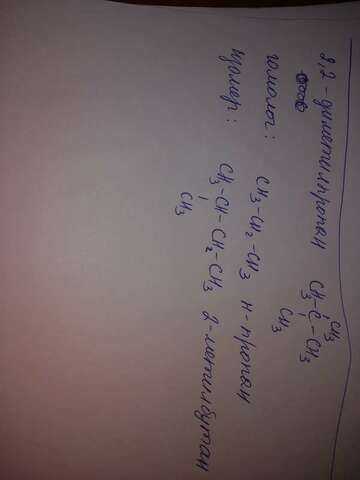 2,2-диметилпропан CH3-C-CH3
CH3
CH3
гомолог: CH3-CH2-CH3 н-пропан
изомер: CH3-CH-CH2-CH3 2-метилбутан
CH3